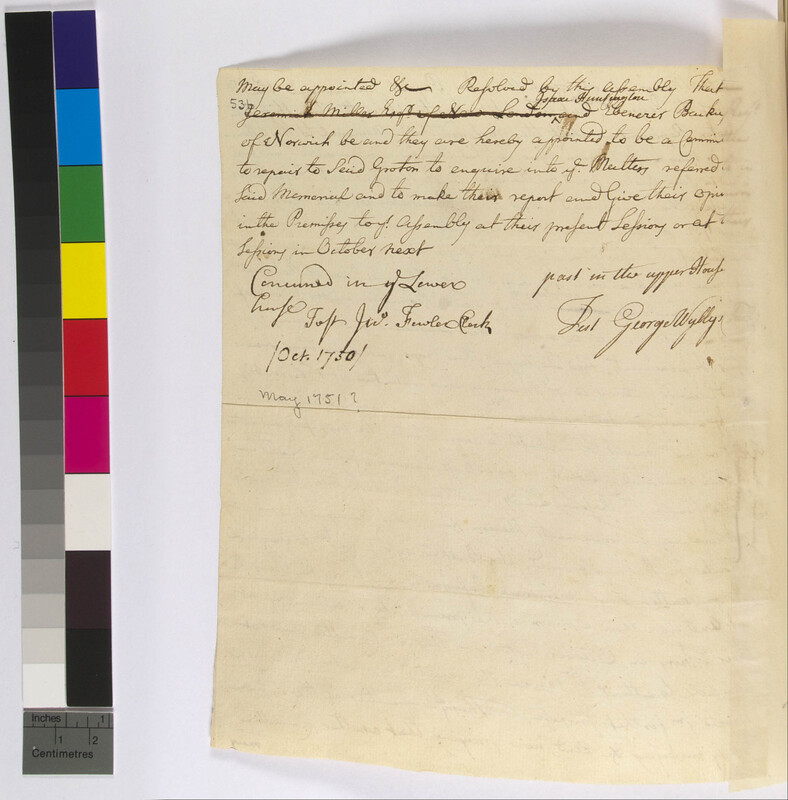 May be appointed &c Resolved by this Assembly That
53b
Isaac Huntington
Jeremiah Miller Esqr. of New London and Ebenezer Backus
of Norwich be and they are hereby appointed to be a Commi
to repair to Said Groton to enquire into ye. Matters referred
Said Memorial and to make their report and Give their opin
in the Premises to ye. Assembly at their present Sessions or at
Sessions in October next
Concurred in ye Lower
house
past in the upper House
Test Jno. Fowler Clerk
Test George Wyllys
/Oct. 1750/
May 1751?
Inches 1
1 2
Centimetres